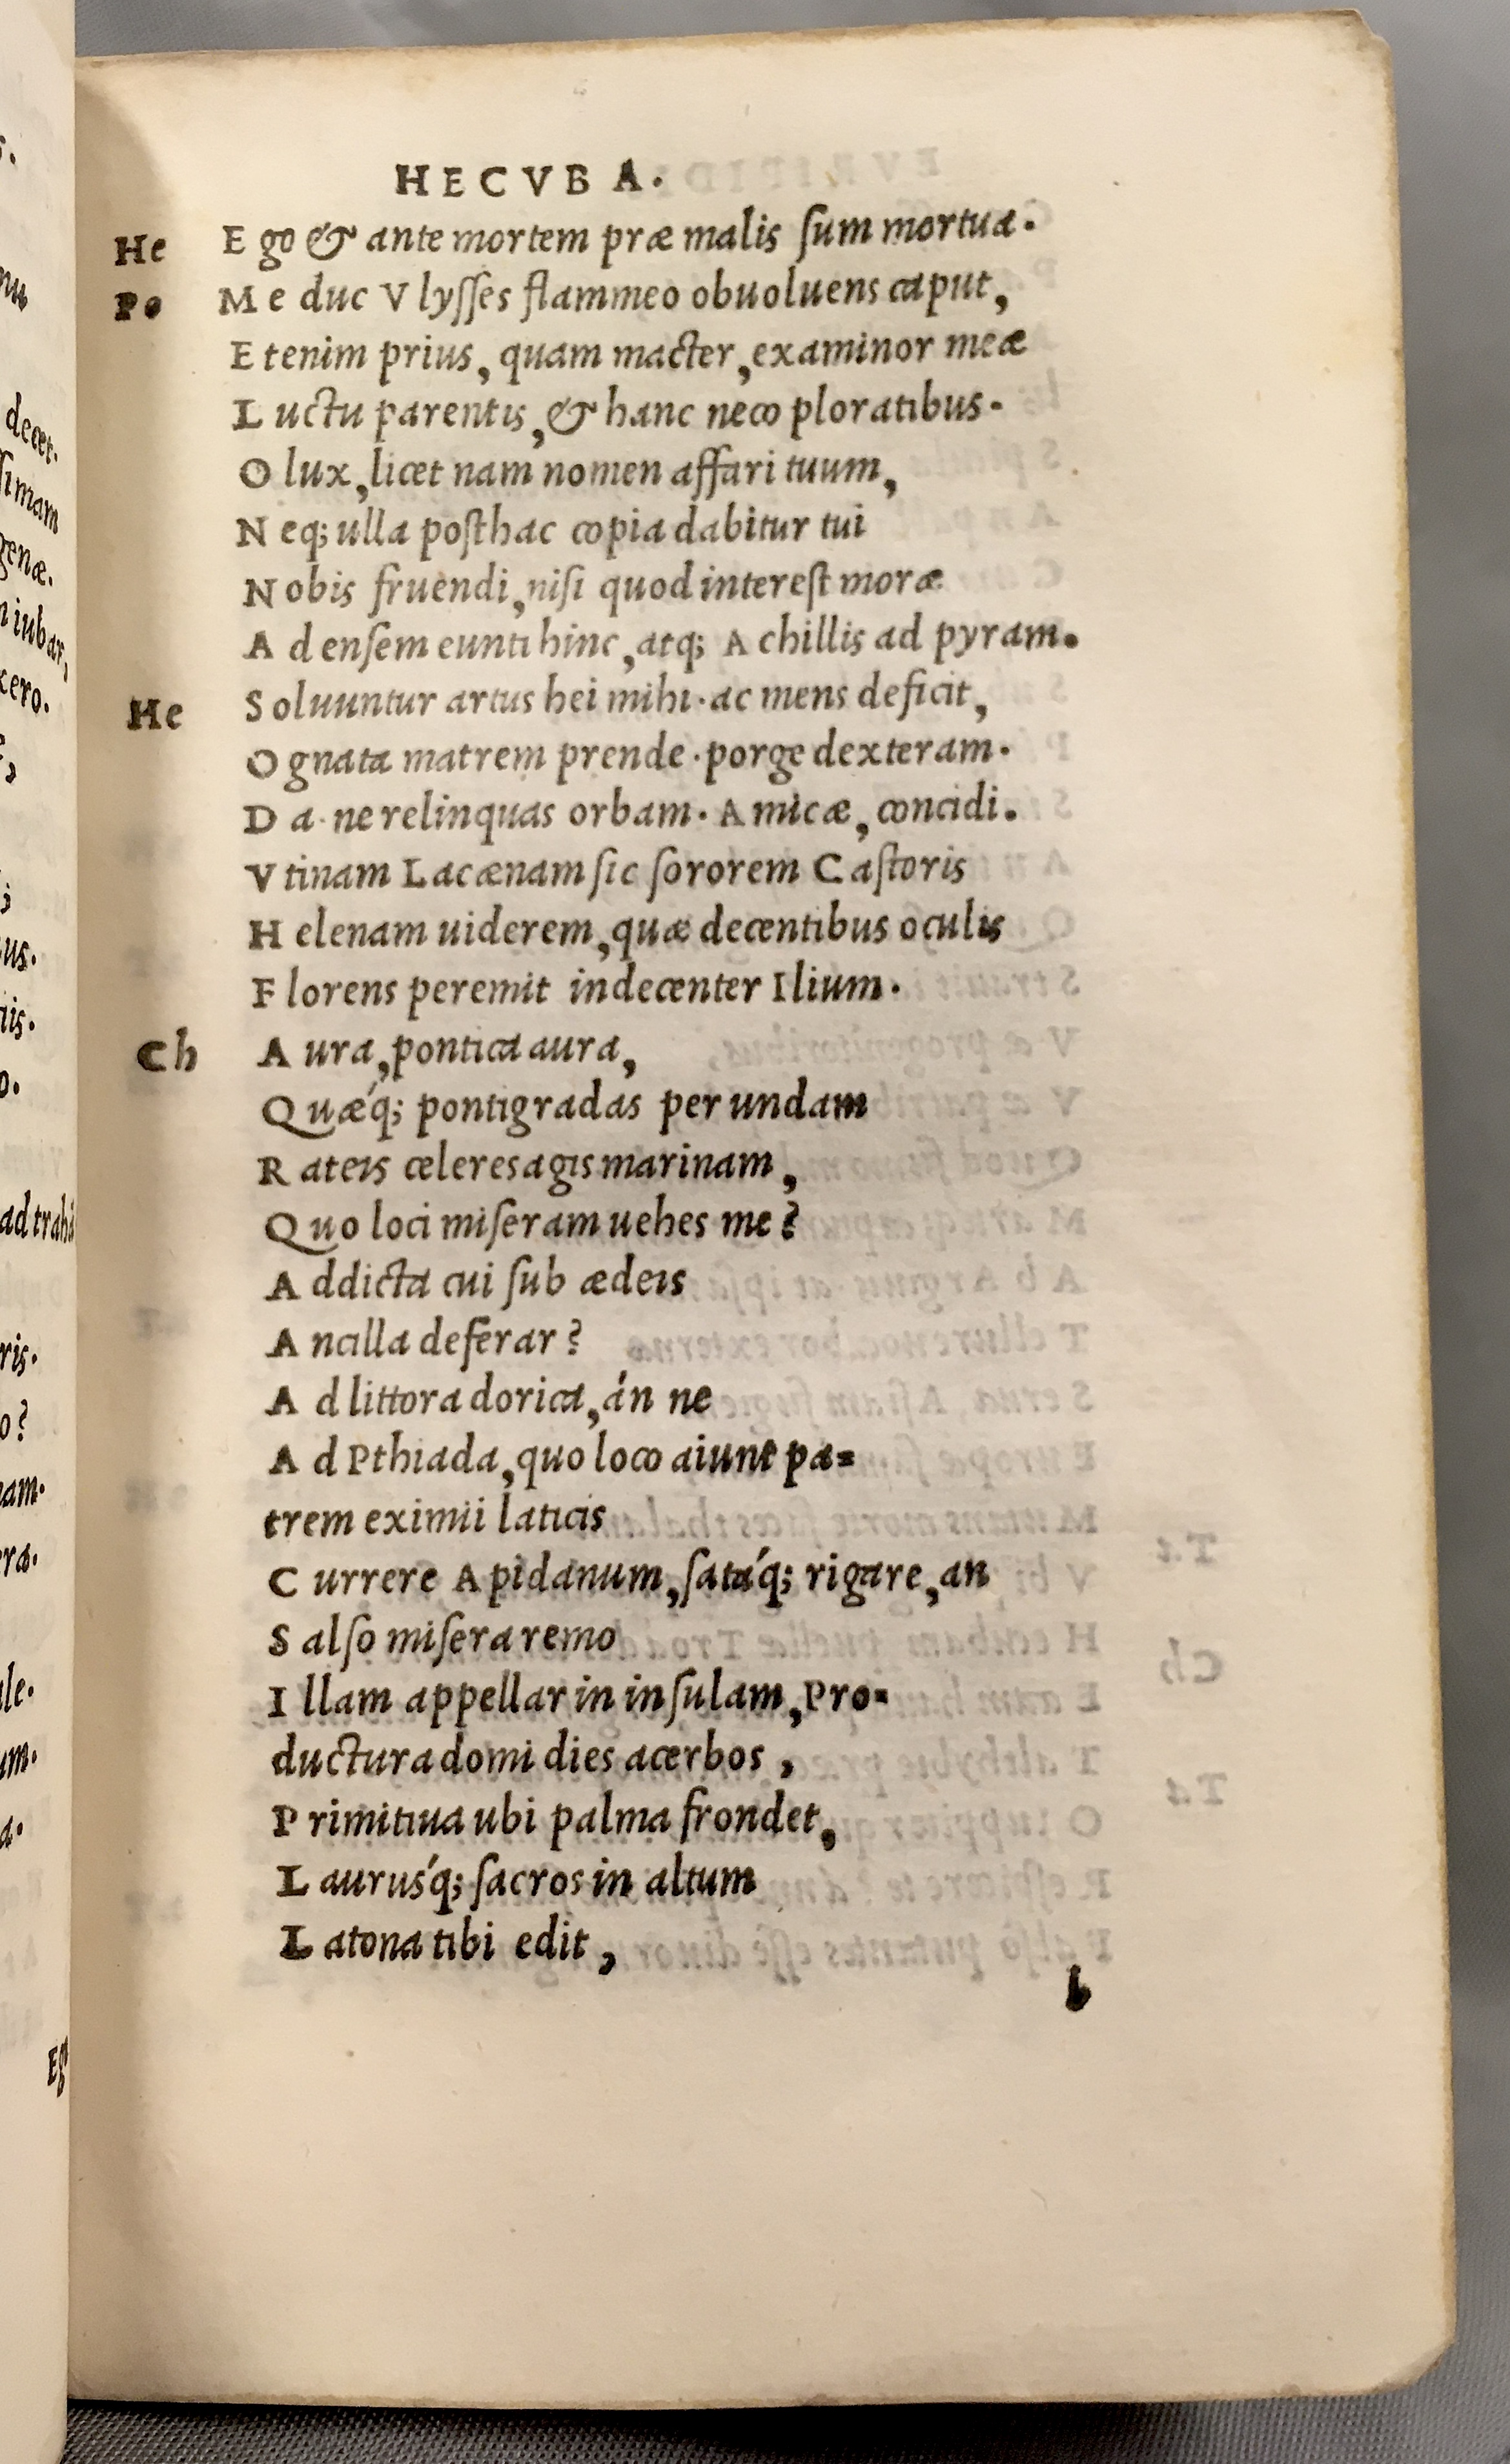 HECVBA.
He Ego & ante mortem præ malis ſum mortua.
Po Me duc Vlyſſes flammeo obuoluens caput,
Etenim prius, quam macter, examinor meæ
Luctu parentis, & hanc neco ploratibus.
O lux, licet nam nomen affari tuum,
Neq; ulla poſthac copia dabitur tui
Nobis fruendi, niſi quod intereſt moræ
Ad enſem eunti hinc, atq; Achillis ad pyram.
He Soluuntur artus hei mihi. ac mens deficit,
O gnata matrem prende. porge dexteram.
Da. ne relinquas orbam. Amicæ, concidi.
Vtinam Lacænam ſic ſororem Caſtoris
Helenam uiderem, quæ decentibus oculis
Florens peremit indecenter Ilium.
Ch Aura, pontica aura,
Quæ´q; pontigradas per undam
Rateis celeres agis marinam,
Quo loci miſeram uehes me?
Addicta cui ſub ædeis
Ancilla deferar?
Ad littora dorica, án ne
Ad Pthiada, quo loco aiunt pa=
trem eximii laticis
Currere Apidanum, ſatáq; rigare, an
Salſo miſera remo
Illam appellar in inſulam, Pro=
ductura domi dies acerbos,
Primitiua ubi palma frondet,
Laurus´q; ſacros in altum
Latona tibi edit,
b
decet.
genæ.
iubar,
ad trahi